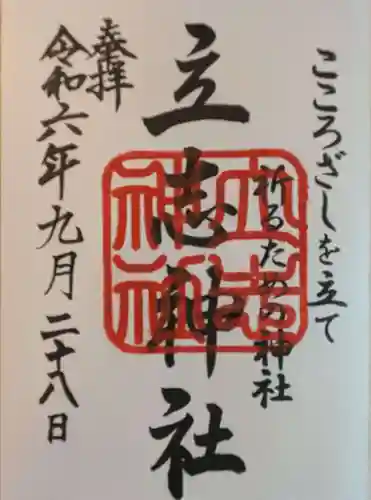 こころざしを立て
祈るための神社
立志神社
奉拝
令和六年九月二十八日
立志
神社